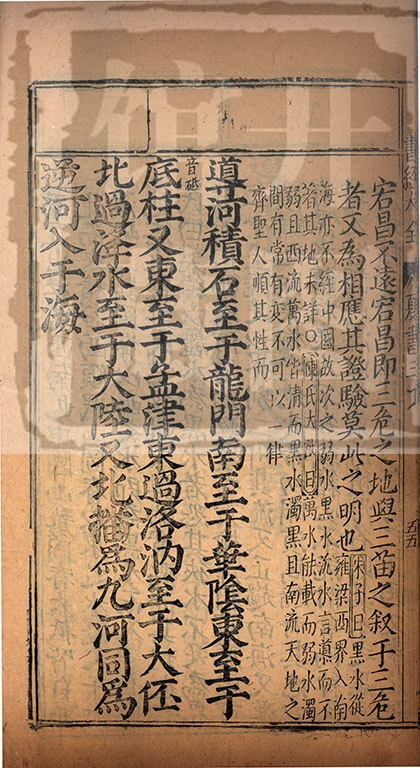 宕昌不遠宕昌即三危之地與三苗之叙于三危
者又為相應其證驗莫此之明也陳子曰黑水從
雍梁西界入南
海亦不經中國故次之弱水黑水沇水言導而不
著其地未詳〇陳氏大猷曰萬水能載而弱水濁
弱且西流萬水皆清而黑水濁黑且南流天地之
間有常有變不可以一律
齊聖人順其性而
導河積石至于龍門南至于華陰東至于
音砥
底柱又東至于孟津東過洛汭至于大伾
北過洚水至于大陸又北播為九河同為
逆河入于海